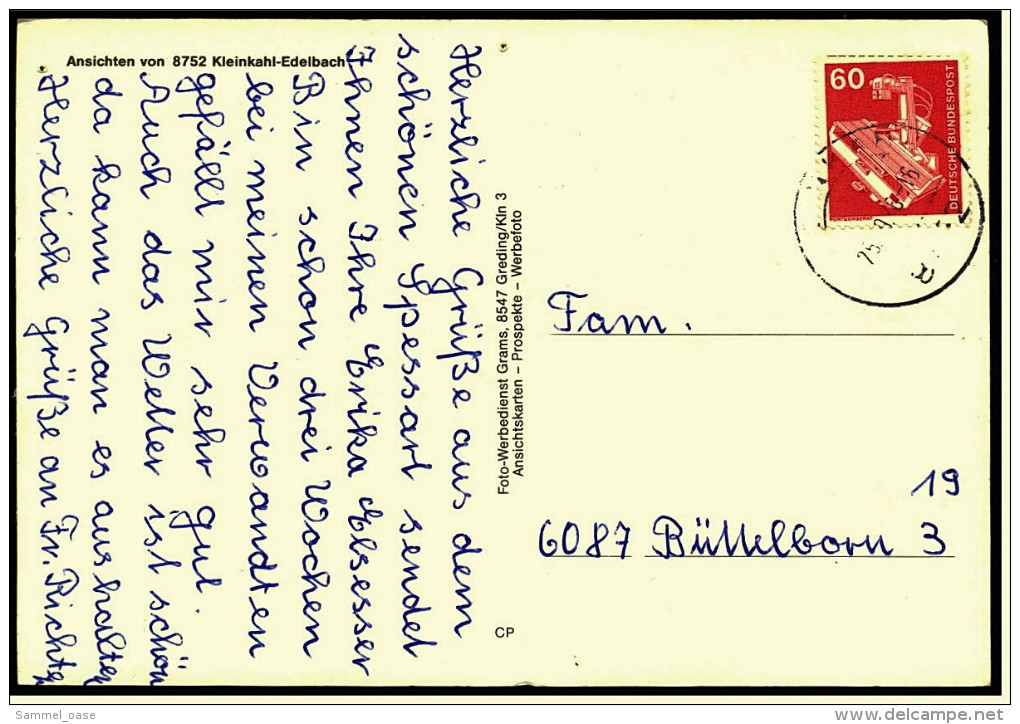 Ansichten von 8752 Kleinkahl-Edelbach
Herzliche Grüße aus dem
schönen Spessart sendet
Ihnen Ihre Erika Elsesser
Bin schon drei Wochen
bei meinen Verwandten
gefällt mir sehr gut.
Auch das Wetter ist schön
da kann man es aushalten
Herzliche Grüße an Fr. Richter
Foto-Werbedienst Grams, 8547 Greding/Kln 3
Ansichtskarten – Prospekte – Werbefoto
CP
60
DEUTSCHE BUNDESPOST
RÖNTGENGERÄT
Fam.
19
6087 Büttelborn 3
Sammel_oase
www.delcampe.net